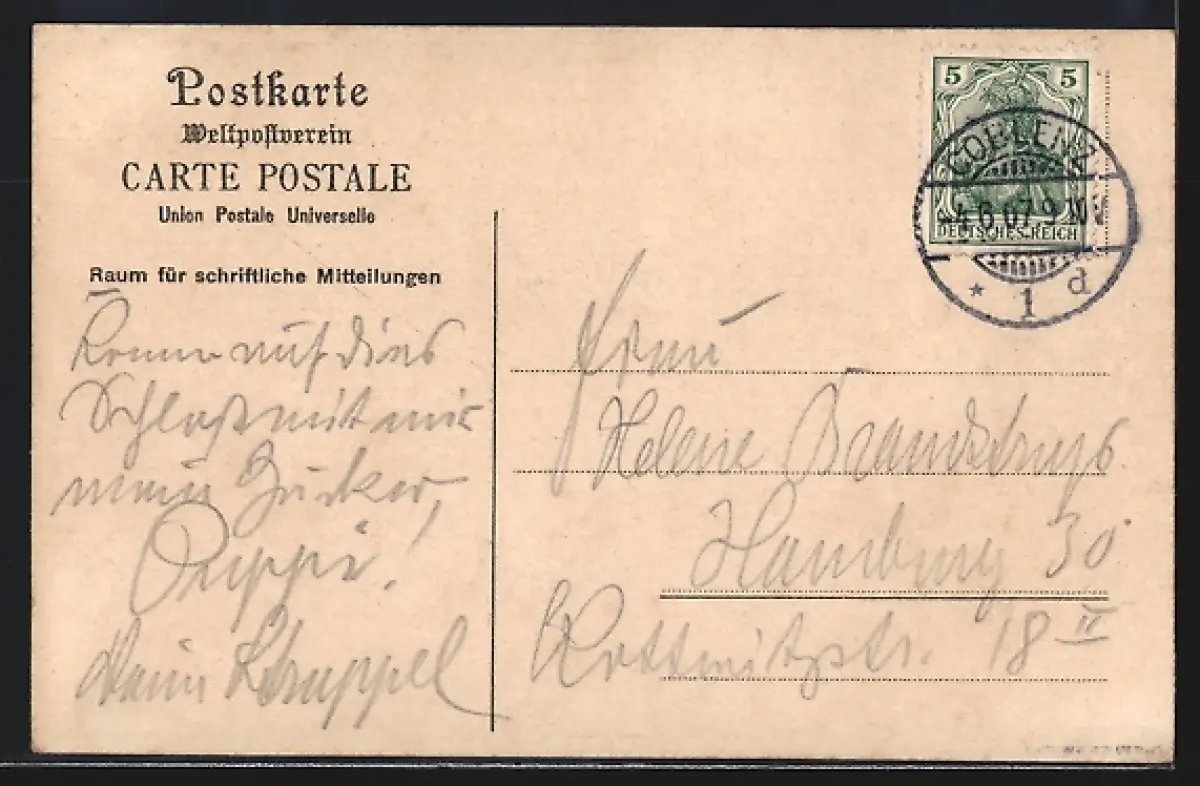 Postkarte
Weltpostverein
CARTE POSTALE
Union Postale Universelle
Raum für schriftliche Mitteilungen
Komm auf dies
Schloß mit mir
mein Zucker,
Puppi!
Dein
5 5
DEUTSCHES REICH
COBLENZ
4.6.07.9
* 1 d
Frau
Helene
Hamburg 30
18 II